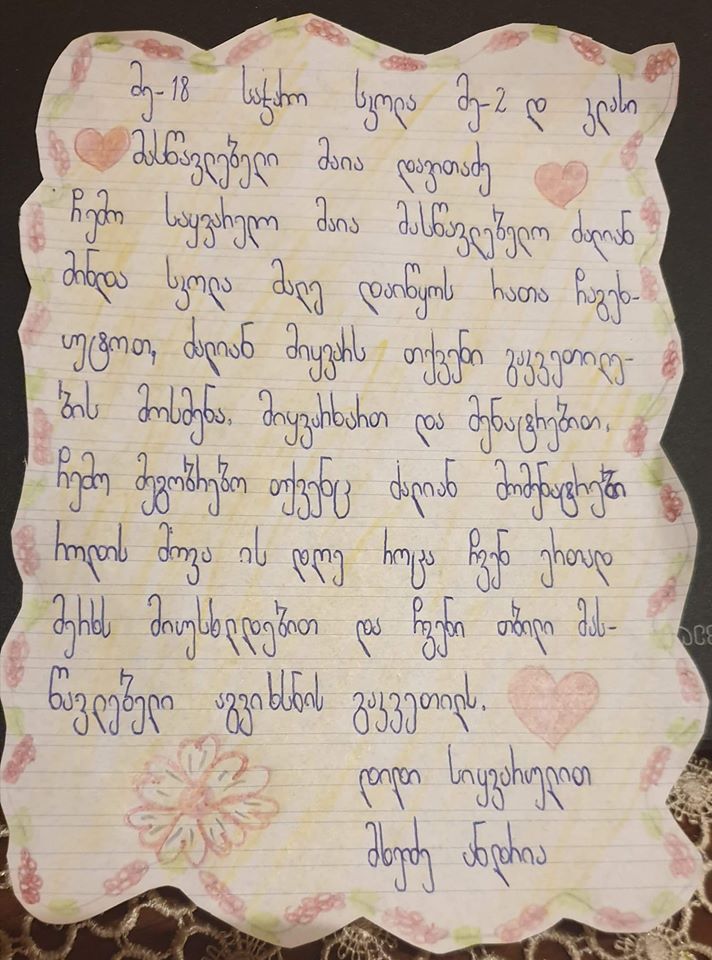 მე-18 საჯარო სკოლა მე-2 დ კლასი
მასწავლებელი მაია დავითაძე
ჩემო საყვარელო მაია მასწავლებელო ძალიან
მინდა სკოლა მალე დაიწყოს რათა ჩაგეხ-
უტოთ, ძალიან მიყვარს თქვენი გაკვეთილე-
ბის მოსმენა. მიყვარხართ და მენატრებით.
ჩემო მეგობრებო თქვენც ძალიან მომენატრეთ
როდის მოვა ის დღე როცა ჩვენ ერთად
მერხს მივუსხდებით და ჩვენი თბილი მას-
წავლებელი აგვიხსნის გაკვეთილს.
დიდი სიყვარულით
ანდრია